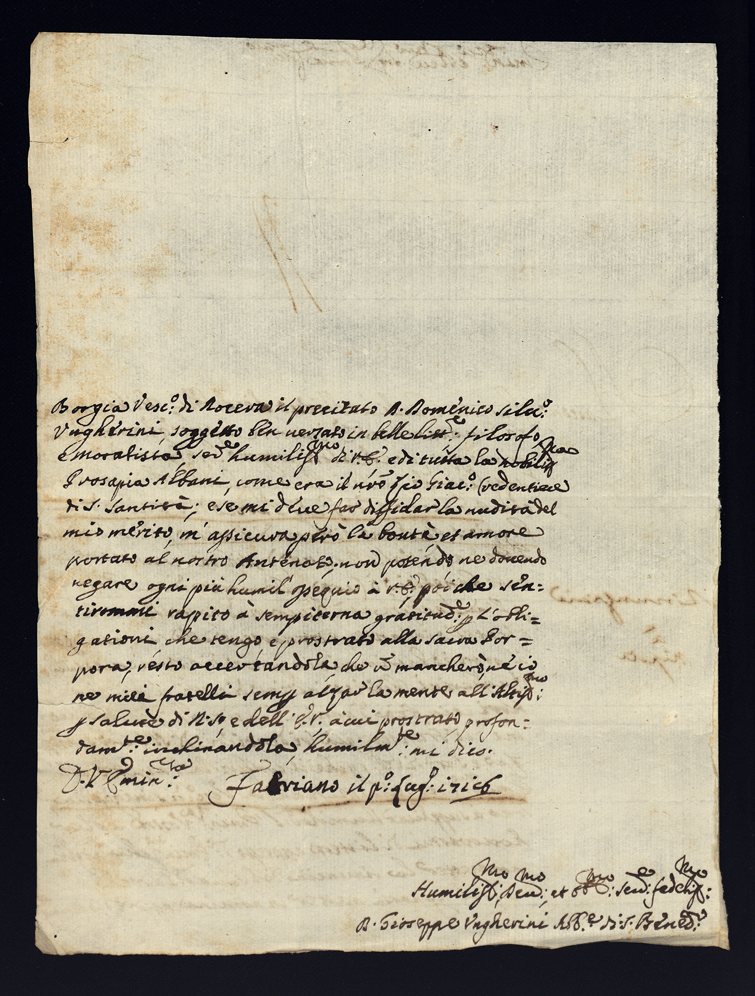 Borgia Vesc.o di Nocera il precitato D. Domenico Silu.o
Vngherini, soggetto ben uersato in belle litt.e filosofo
e moralista seru.e humiliss.mo di V.E. e di tutta la nobiliss.ma
Prosapia Albani, come era il nro Zio Giac.o Credentiere
di S. Santità; e se mi deue far diffidar la nudità del
mio merito, m'assicura però la bontà, et amore
portato al nostro Antenato, non potendo ne douendo
negare ogni più humil' ossequio à V.E. poiche sen=
tirommi rapito à sempiterna gratitud.e p l'obli=
gationi che tengo e prostrato alla sacra Por=
pora, resto accertandola che ñ mancherò, nè io
ne miei fratelli semp alzar la mente all'Altiss.mo:
p salute di N. Sre e dell'E.V. à cui prostrato profon-
dam.te inchinandola, humilm.te mi dico.
D. V. Emin.za
Fabriano il p.o Lug.o 1716
Humiliss.mo Deu.mo et obb.mo seru.e fedeliss.mo:
D. Gioseppe Vngherini Abb.e di S. Bened.o